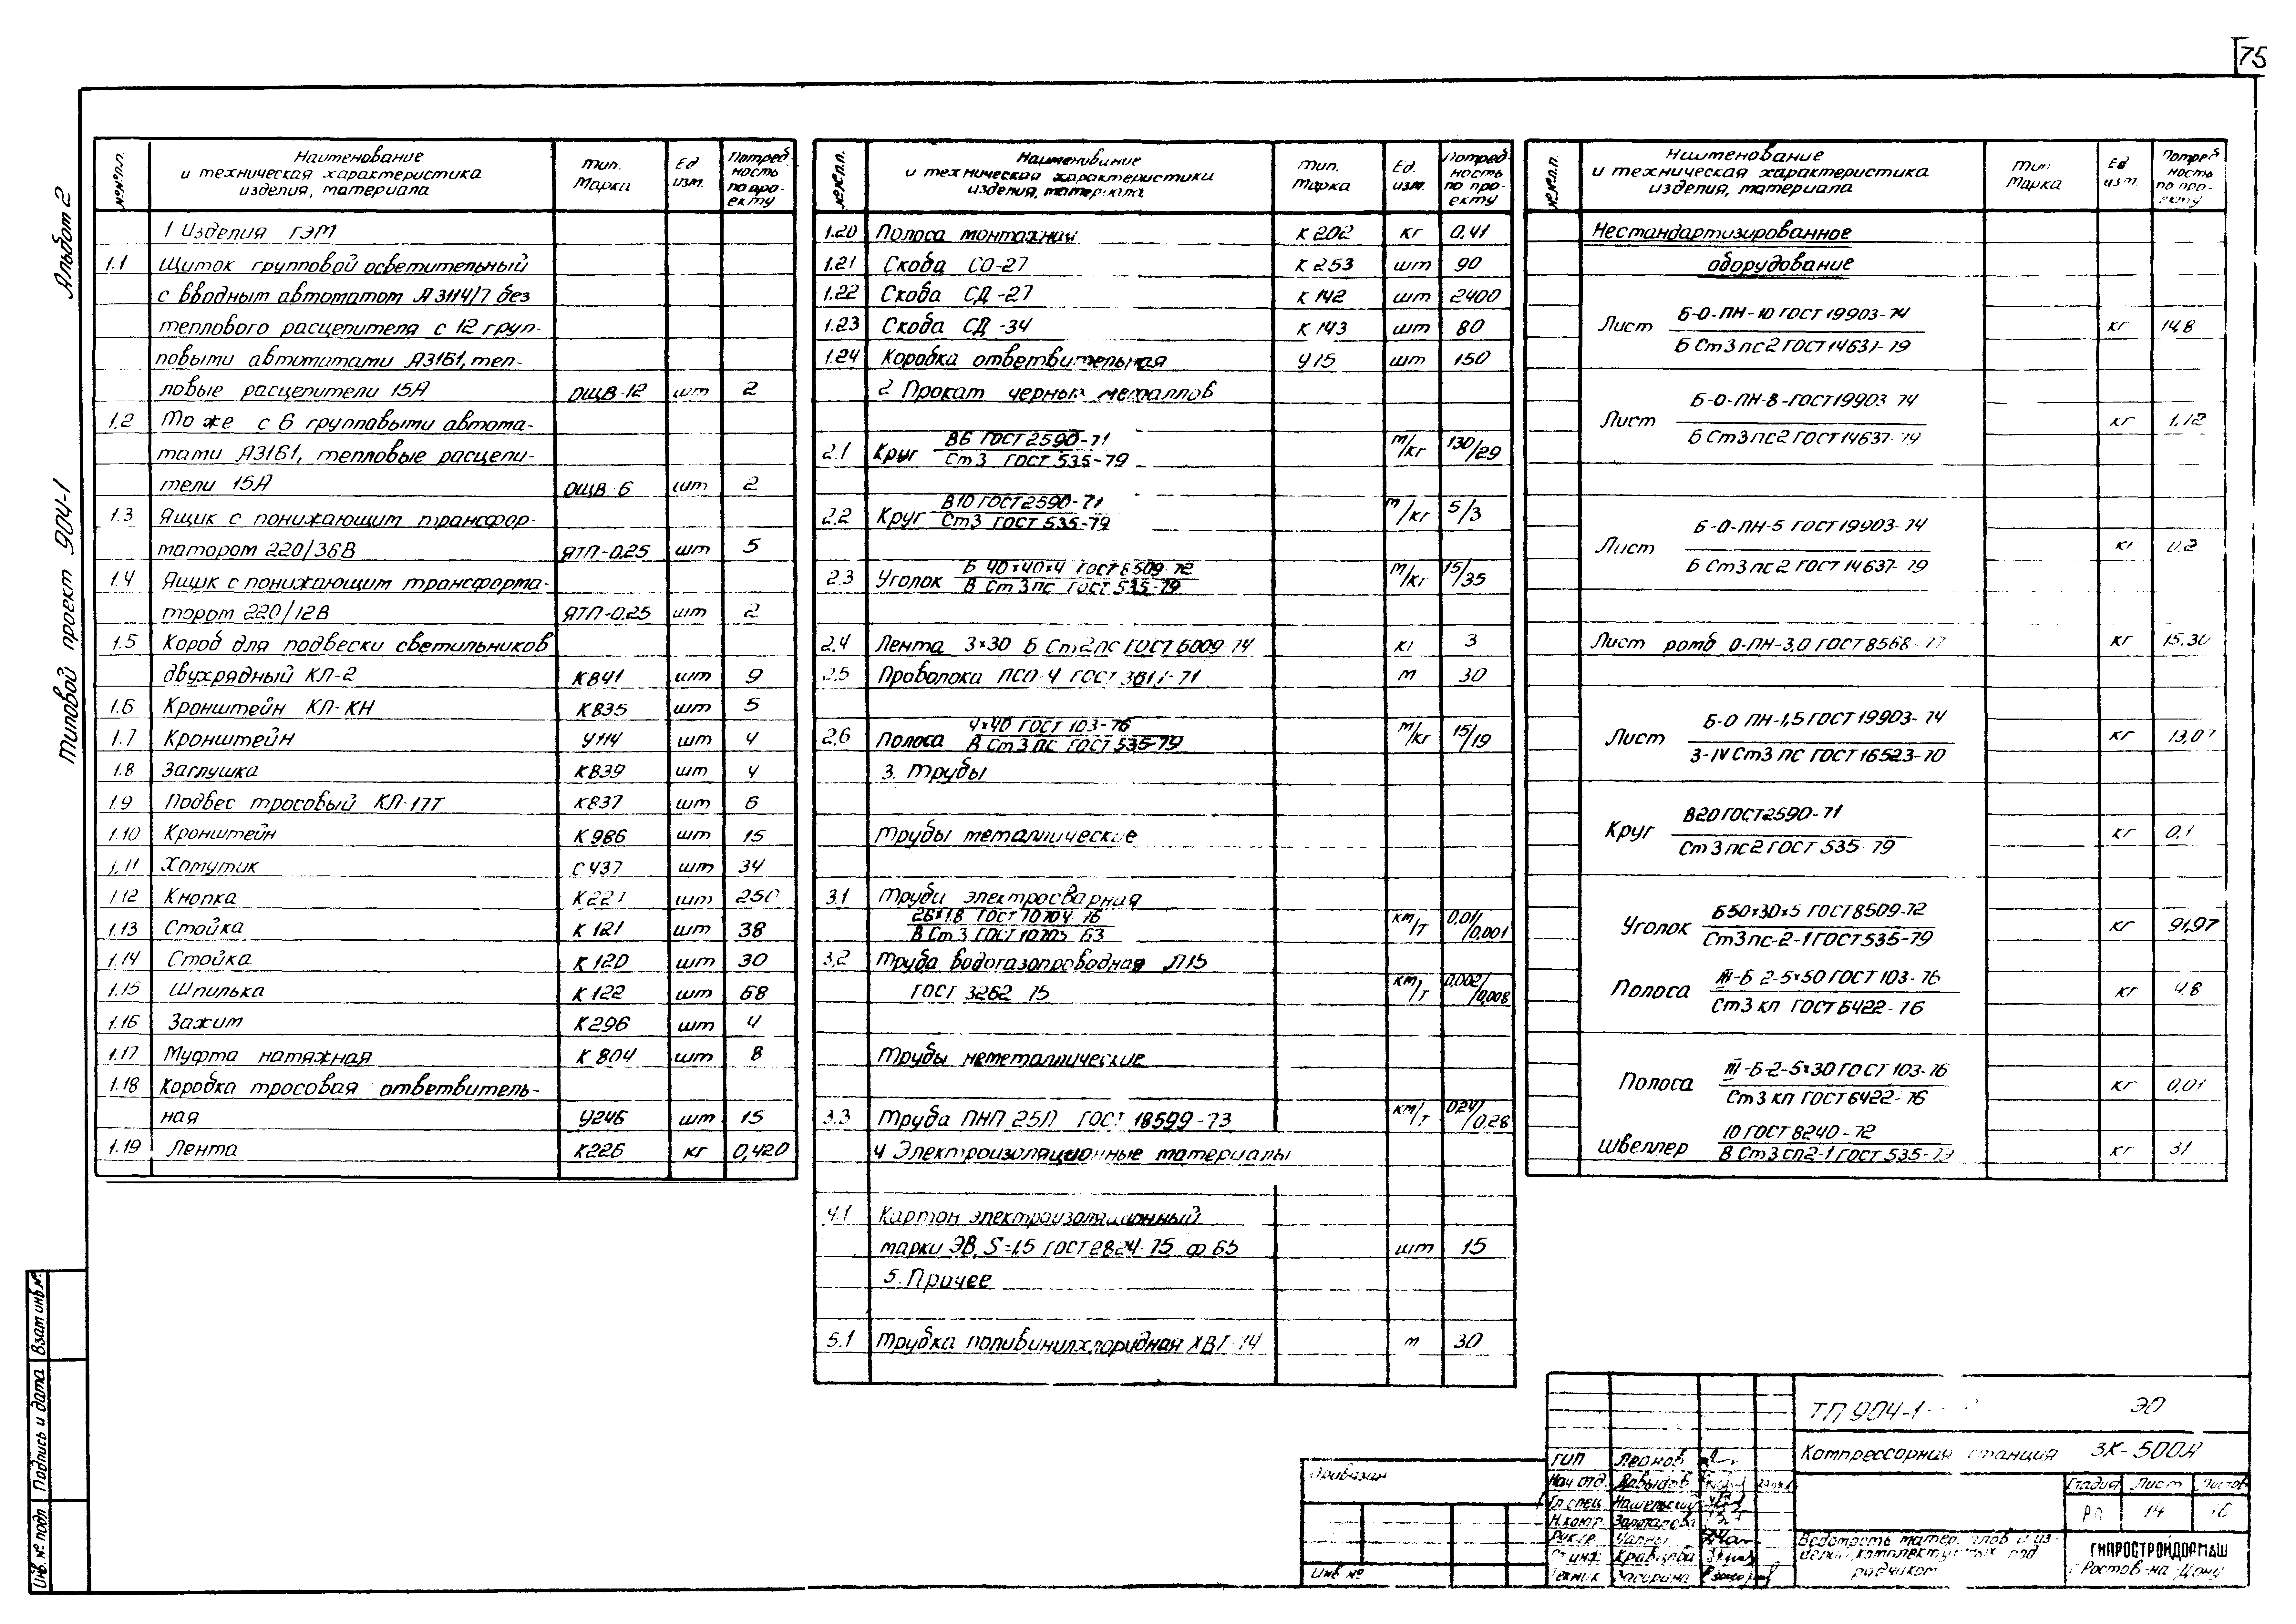 75
Альбом 2
Типовой проект 904-1
№№ п.п.
Наименование и техническая характеристика изделия, материала
Тип. Марка
Ед. изм.
Потребность по проекту
1 Изделия ГЭМ
1.1 Щиток групповой осветительный
с вводным автоматом А3114/7 без
теплового расцепителя с 12 груп-
повыми автоматами А3161, теп-
ловые расцепители 15А ОЩВ-12 шт 2
1.2 То же с 6 групповыми автома-
тами А3161, тепловые расцепи-
тели 15А ОЩВ-6 шт 2
1.3 Ящик с понижающим трансфор-
матором 220/36В ЯТП-0,25 шт 5
1.4 Ящик с понижающим трансформа-
тором 220/12В ЯТП-0,25 шт 2
1.5 Короб для подвески светильников
двухрядный КЛ-2 К841 шт 9
1.6 Кронштейн КЛ-КН К835 шт 5
1.7 Кронштейн У114 шт 4
1.8 Заглушка К839 шт 4
1.9 Подвес тросовый КЛ-17Т К837 шт 6
1.10 Кронштейн К986 шт 15
1.11 Хомутик С437 шт 34
1.12 Кнопка К227 шт 250
1.13 Стойка К121 шт 38
1.14 Стойка К120 шт 30
1.15 Шпилька К122 шт 68
1.16 Зажим К296 шт 4
1.17 Муфта натяжная К804 шт 8
1.18 Коробка тросовая ответвитель-
ная У246 шт 15
1.19 Лента К226 кг 0,420
№№ п.п.
Наименование и техническая характеристика изделия, материала
Тип. Марка
Ед. изм.
Потребность по проекту
1.20 Полоса монтажния К202 кг 0.41
1.21 Скоба СО-27 К253 шт 90
1.22 Скоба СД-27 К142 шт 2400
1.23 Скоба СД-34 К143 шт 80
1.24 Коробка ответвительная У15 шт 150
2 Прокат черных металлов
2.1 Круг В6 ГОСТ 2590-71 / Ст3 ГОСТ 535-79 м/кг 130/29
2.2 Круг В10 ГОСТ 2590-71 / Ст3 ГОСТ 535-79 м/кг 5/3
2.3 Уголок Б 40×40×4 ГОСТ 8509-72 / В Ст3пс ГОСТ 535-79 м/кг 15/35
2.4 Лента 3×30 Б Ст2пс ГОСТ 6009-74 кг 3
2.5 Проволока ПСО-4 ГОСТ м 30
2.6 Полоса 4×40 ГОСТ 103-76 / В Ст3пс ГОСТ 535-79 м/кг 15/19
3. Трубы
Трубы металлические
3.1 Труба электросварная
26×1.8 ГОСТ 10704-76 / В Ст3 ГОСТ 10705-63 км/т 0,01/0,001
3.2 Труба водогазопроводная Л15
ГОСТ 3262-75 км/т 0,002/0,008
Трубы неметаллические
3.3 Труба ПНП 25Л ГОСТ 18599-73 км/т 0,24/0,28
4 Электроизоляционные материалы
4.1 Картон электроизоляционный
марки ЭВ, S=1,5 ГОСТ 2824-75 ф 65 шт 15
5. Прочее
5.1 Трубка поливинилхлоридная ХВТ-14 м 30
№№ п.п.
Наименование и техническая характеристика изделия, материала
Тип Марка
Ед изм.
Потребность по проекту
Нестандартизированное
оборудование
Лист Б-О-ПН-10 ГОСТ 19903-74 / Б Ст3пс2 ГОСТ 14637-79 кг 14,8
Лист Б-О-ПН-8-ГОСТ 19903-74 / Б Ст3пс2 ГОСТ 14637-79 кг 1,12
Лист Б-О-ПН-5 ГОСТ 19903-74 / Б Ст3пс2 ГОСТ 14637-79 кг 0.2
Лист ромб О-ПН-3,0 ГОСТ 8568- кг 15.30
Лист Б-О ПН-1,5 ГОСТ 19903-74 / 3-IV Ст3 ПС ГОСТ 16523-70 кг
Круг В20 ГОСТ 2590-71 / Ст3пс2 ГОСТ 535-79 кг 0,1
Уголок Б50×30×5 ГОСТ 8509-72 / Ст3пс-2-1 ГОСТ 535-79 кг 91,97
Полоса III-Б 2-5×50 ГОСТ 103-76 / Ст3 кп ГОСТ 6422-76 кг 4.8
Полоса III-Б-2-5×30 ГОСТ 103-76 / Ст3 кп ГОСТ 6422-76 кг 0,01
Швеллер 10 ГОСТ 8240-72 / В Ст3 сп2-1 ГОСТ 535-79 кг 31
Взам. инв. №
Подпись и дата
Инв. № подл
Привязан
Инв №
ГИП Леонов
Нач отд. Давыдов
Гл спец.
Н.контр. Золотарева
Рук.гр.
Ст инж. Кравцова
Техник Засорина
ТП 904-1 ЭО
Компрессорная станция 3К-500А
Стадия Лист Листов
РП 14
Ведомость материалов и из-
делий комплектуемых под
рядчиком
ГИПРОСТРОЙДОРМАШ
г Ростов-на-Дону